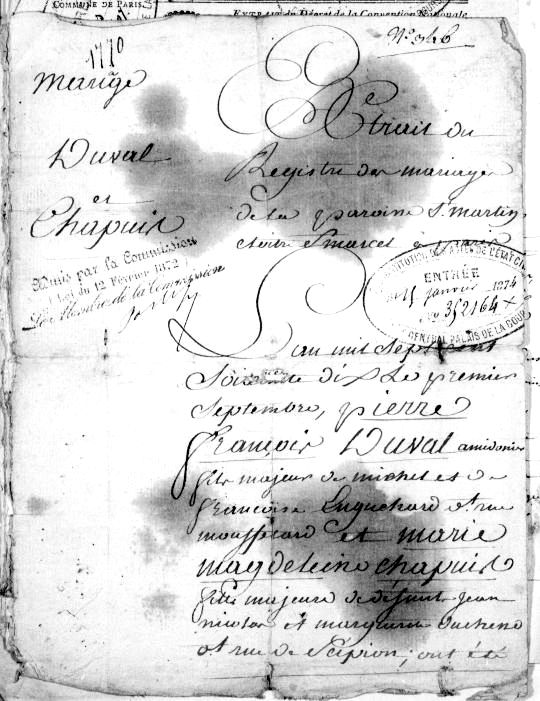 COMMUNE DE PARIS
EXTRAIT du Décret de la Convention Nationale
N° 946
1770
Mariage
Duval
et
Chapuis
Admis par la Commission
Loi du 12 Février 1872
Le Membre de la Commission
Extrait du
Registre des mariages
de la paroisse St. martin
cloitre St marcel a paris
RECONSTITUTION DES ACTES DE L'ÉTAT CIVIL
ENTRÉE
15 janvier 1874
352164
CENTRAL PALAIS DE LA BOURSE
L'an mil sept cent
Soixante dix Le premier
Septembre, pierre
françois Duval amidonier
fils majeur de michel et de
françoise Enguehard dt rue
mouffetard et marie
magdeleine chapuis
fille majeure de defunt jean
nicolas et marguerite duchene
dt rue de Scipion; ont été